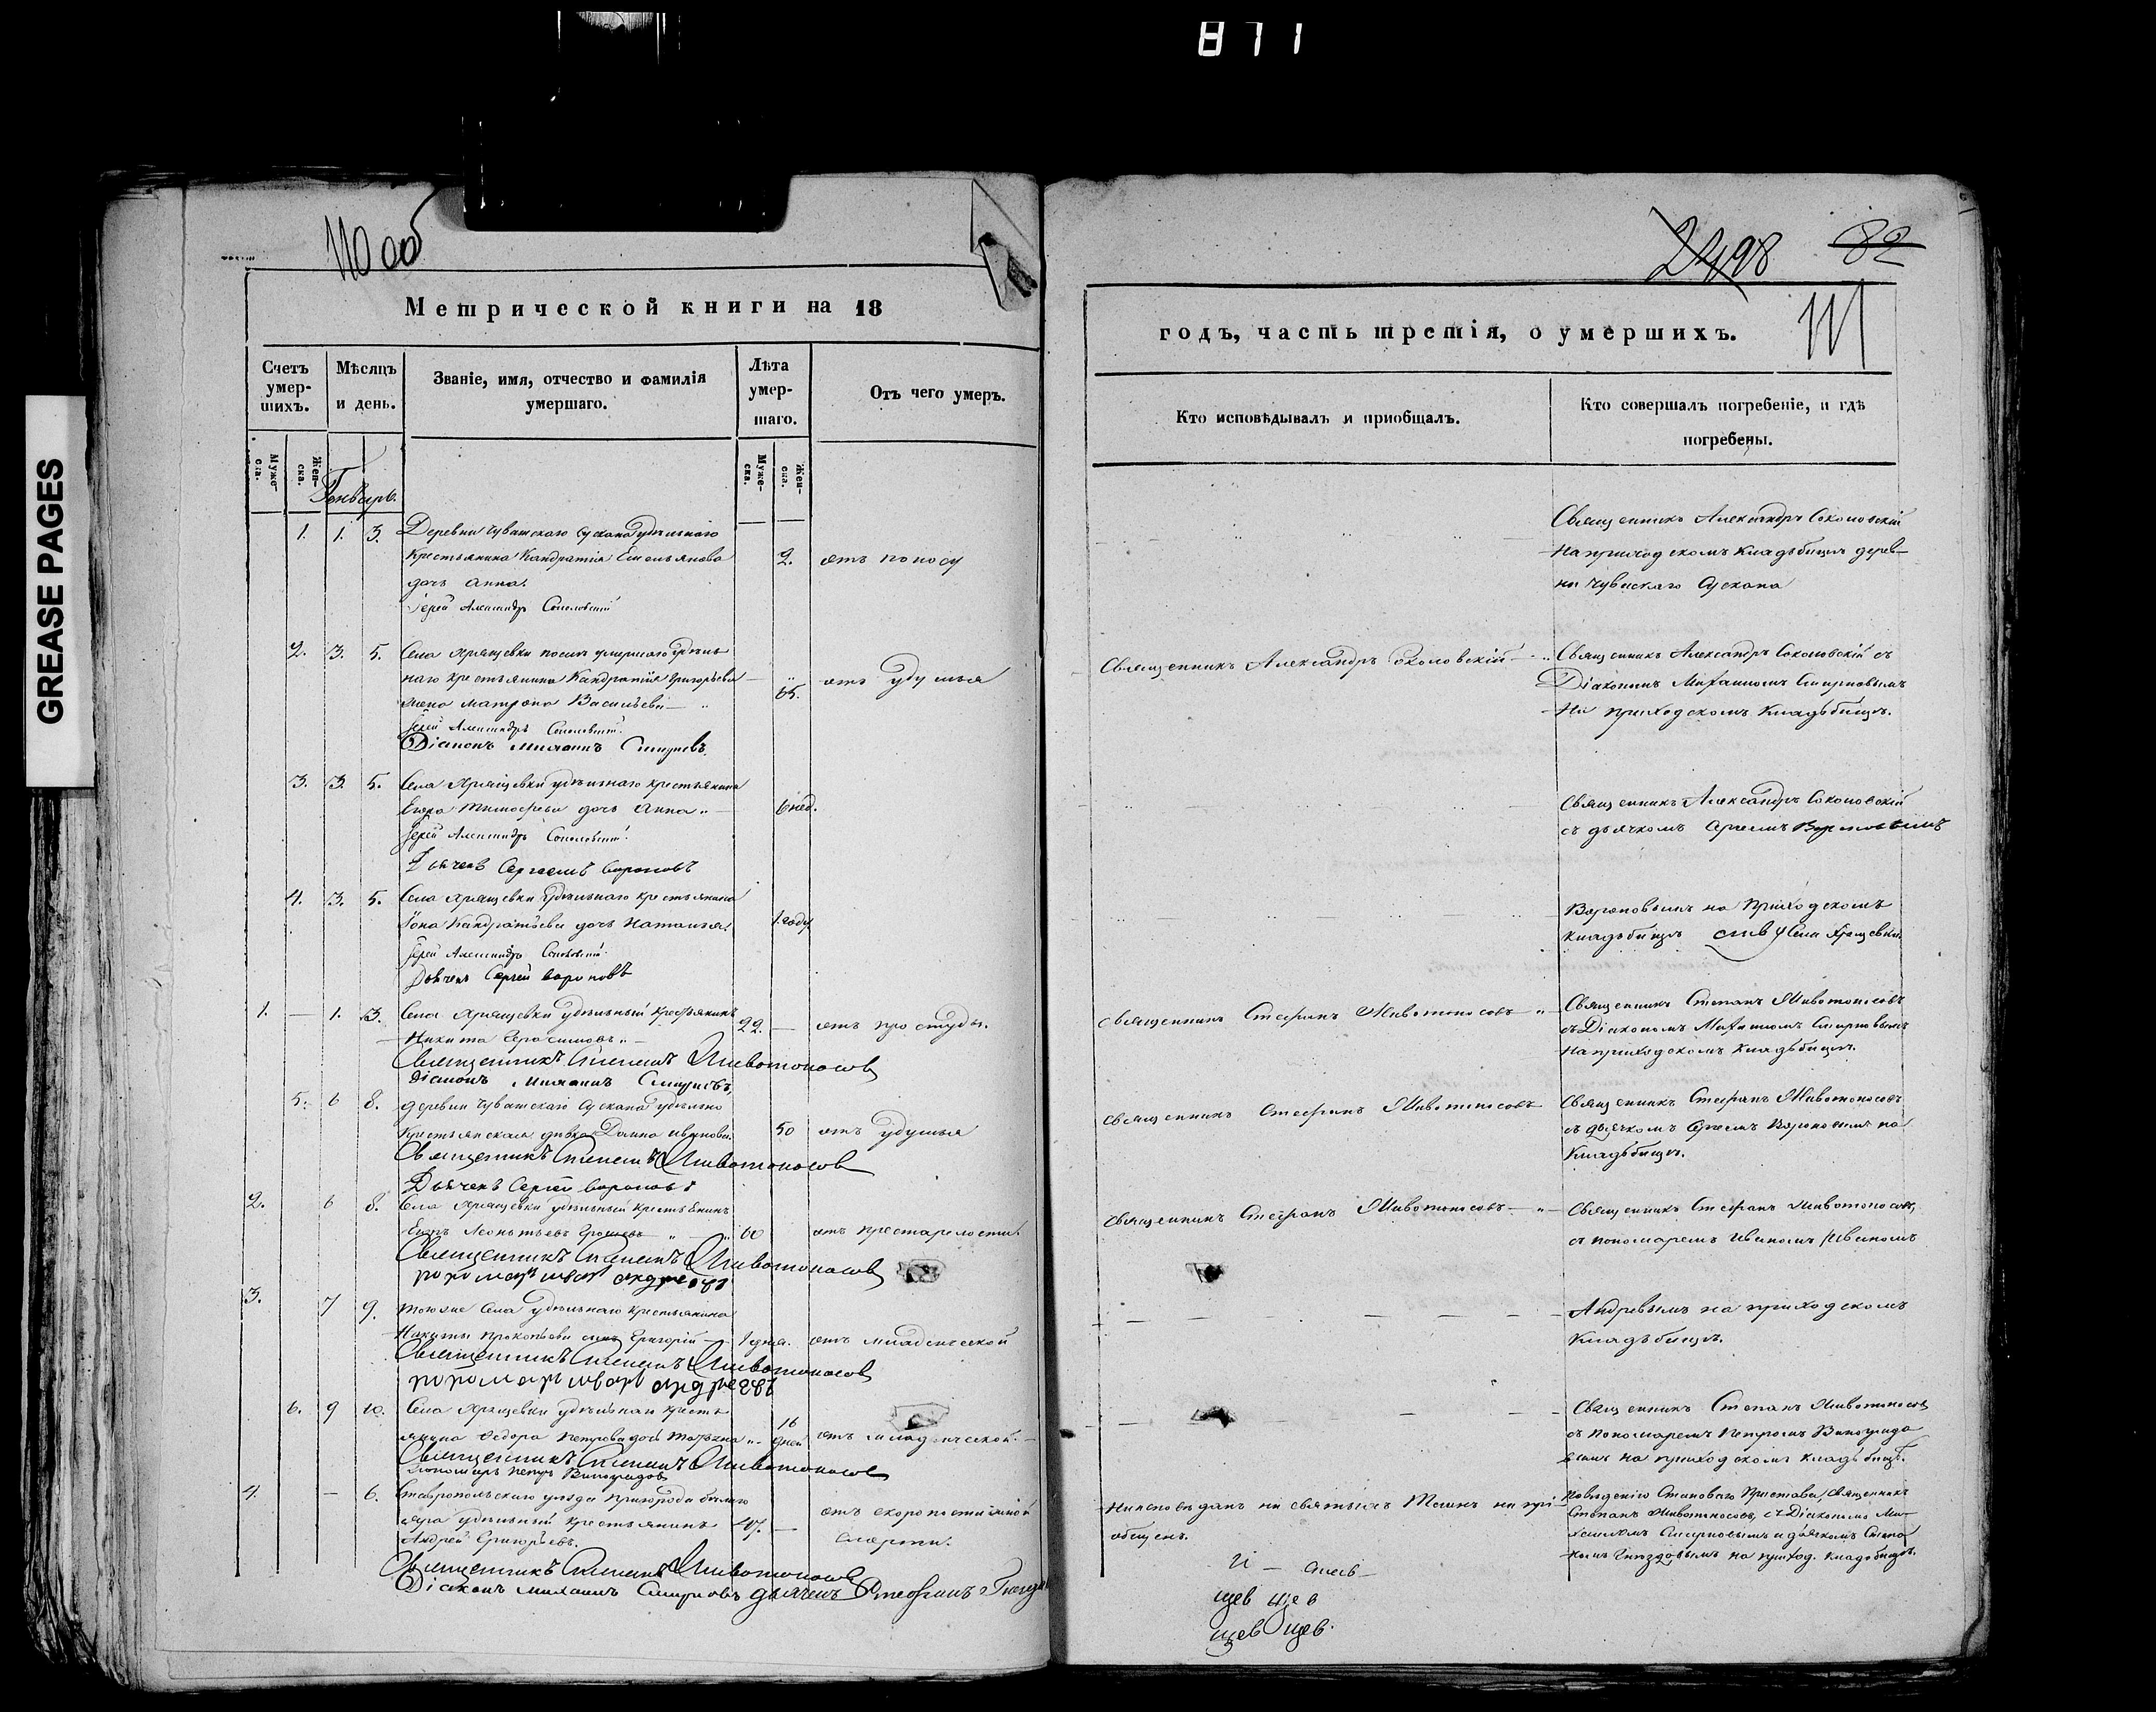 871
GREASE PAGES
110 об
98
82
111
Метрической книги на 18
годъ, часть третія, о умершихъ.
Счетъ умер-шихъ.
Мѣсяцъ и день.
Званіе, имя, отчество и фамилія умершаго.
Лѣта умер-шаго.
Отъ чего умеръ.
Кто исповѣдывалъ и приобщалъ.
Кто совершалъ погребеніе, и гдѣ погребены.
Муже-ска.
Жен-ска.
Муже-ска.
Жен-ска.
Генварь.
1. 1. 3. Деревни Чувашскаго Сускана удѣльнаго
крестьянина Кандратія Емельянова
дочь Анна.
2. отъ поносу
Іерей Александръ Соколовскій
Священникъ Александръ Соколовскій
на приходскомъ кладбищѣ дерев-
ни Чувашскаго Сускана
2. 3. 5. Села Хрящевки послѣ умершаго удѣль
наго крестьянина Кандратія Григорьева
жена Матрона Васильева
65. отъ удушья
Іерей Александръ Соколовскій.
Діаконъ Михаилъ Смирновъ
Священникъ Александръ Соколовскій
Священникъ Александръ Соколовскій съ
Діакономъ Михаиломъ Смирновымъ
на приходскомъ кладбищѣ.
3. 3. 5. Села Хрящевки удѣльнаго крестьянина
Тимофеева дочь Анна
6 нед.
Іерей Александръ Соколовскій
Дьячекъ Сергей Вороновъ
Священникъ Александръ Соколовскій
съ дьячкомъ Сергеемъ Вороновымъ
4. 3. 5. Села Хрящевки удѣльнаго крестьянина
Кандратьева дочь Наталья.
1 году
Іерей Александръ Соколовскій
Дьячекъ Сергей Вороновъ
Вороновымъ на приходскомъ
кладбищѣ Села Хрящевки
1. 1. 3. Села Хрящевки удѣльный крестьянинъ
Никита Герасимовъ
22. отъ простуды.
Священникъ Стефанъ Животоносовъ
Діаконъ Михаилъ Смирновъ
Священникъ Стефанъ Животоносовъ
Священникъ Степанъ Животоносовъ
съ Діакономъ Михаиломъ Смирновымъ
на приходскомъ кладбищѣ.
5. 6 8. деревни Чувашскаго Сускана удѣльно
крестьянская дѣвка Домна Иванова
50 отъ удушья
Священникъ Степанъ Животоносовъ
Дьячекъ Сергей Вороновъ
Священникъ Стефанъ Животоносовъ
Священникъ Стефанъ Животоносовъ
съ дьячкомъ Сергеемъ Вороновымъ на
кладбищѣ.
2. 6 8. Села Хрящевки удѣльный крестьянинъ
Леонтьевъ
60 отъ престарелости
Священникъ Степанъ Животоносовъ
пономарь Иванъ Андреевъ
Священникъ Стефанъ Животоносовъ
Священникъ Стефанъ Животоносовъ
съ пономаремъ Иваномъ Иваномъ
3. 7 9. тогоже Села удѣльнаго крестьянина
Никиты Прокопьева сынъ Григорій
1 дня. отъ младенческой
Священникъ Степанъ Животоносовъ
пономарь Иванъ Андреевъ
Андреевымъ на приходскомъ
кладбищѣ.
6. 9 10. Села Хрящевки удѣльнаго кресть
янина Федора Петрова дочь Татьяна
16 дней отъ младенческой
Священникъ Степанъ Животоносовъ
Пономарь Петръ Виноградовъ
Священникъ Степанъ Животоносовъ
съ пономаремъ Петромъ Виноградо
вымъ на приходскомъ кладбищѣ.
4. — 6. Ставропольскаго уѣзда пригорода бѣлаго
яра удѣльный крестьянинъ
Андрей Григорьевъ.
47. отъ скоропостижной
смерти.
Священникъ Степанъ Животоносовъ
Діаконъ Михаилъ Смирновъ дьячекъ Стефанъ Гнездо
Неисповѣданъ ни святыхъ Таинъ не при-
общенъ.
Становаго Пристава, Священникъ
Степанъ Животоносовъ, съ Діакономъ Ми-
хаиломъ Смирновымъ и дьячкомъ Степа
номъ Гнездовымъ на приход. кладбищѣ.
щев щев
щев щев.